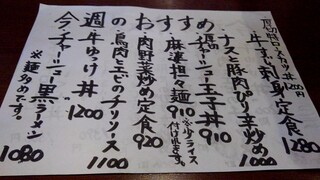 今週のおすすめ
厚切ロースカツ丼1200円
牛すじ刺身定食 1280
ナスと豚肉ぴり辛炒め 1000
週替チャーシュー玉子丼 910
麻婆担々麺 910
※少ライス付けれます。
肉野菜炒め定食 920
鳥肉と玉子のチリソース 1100
牛ゆっけ丼 1200
チャーシュー黒ラーメン 1080
※麺多めです。